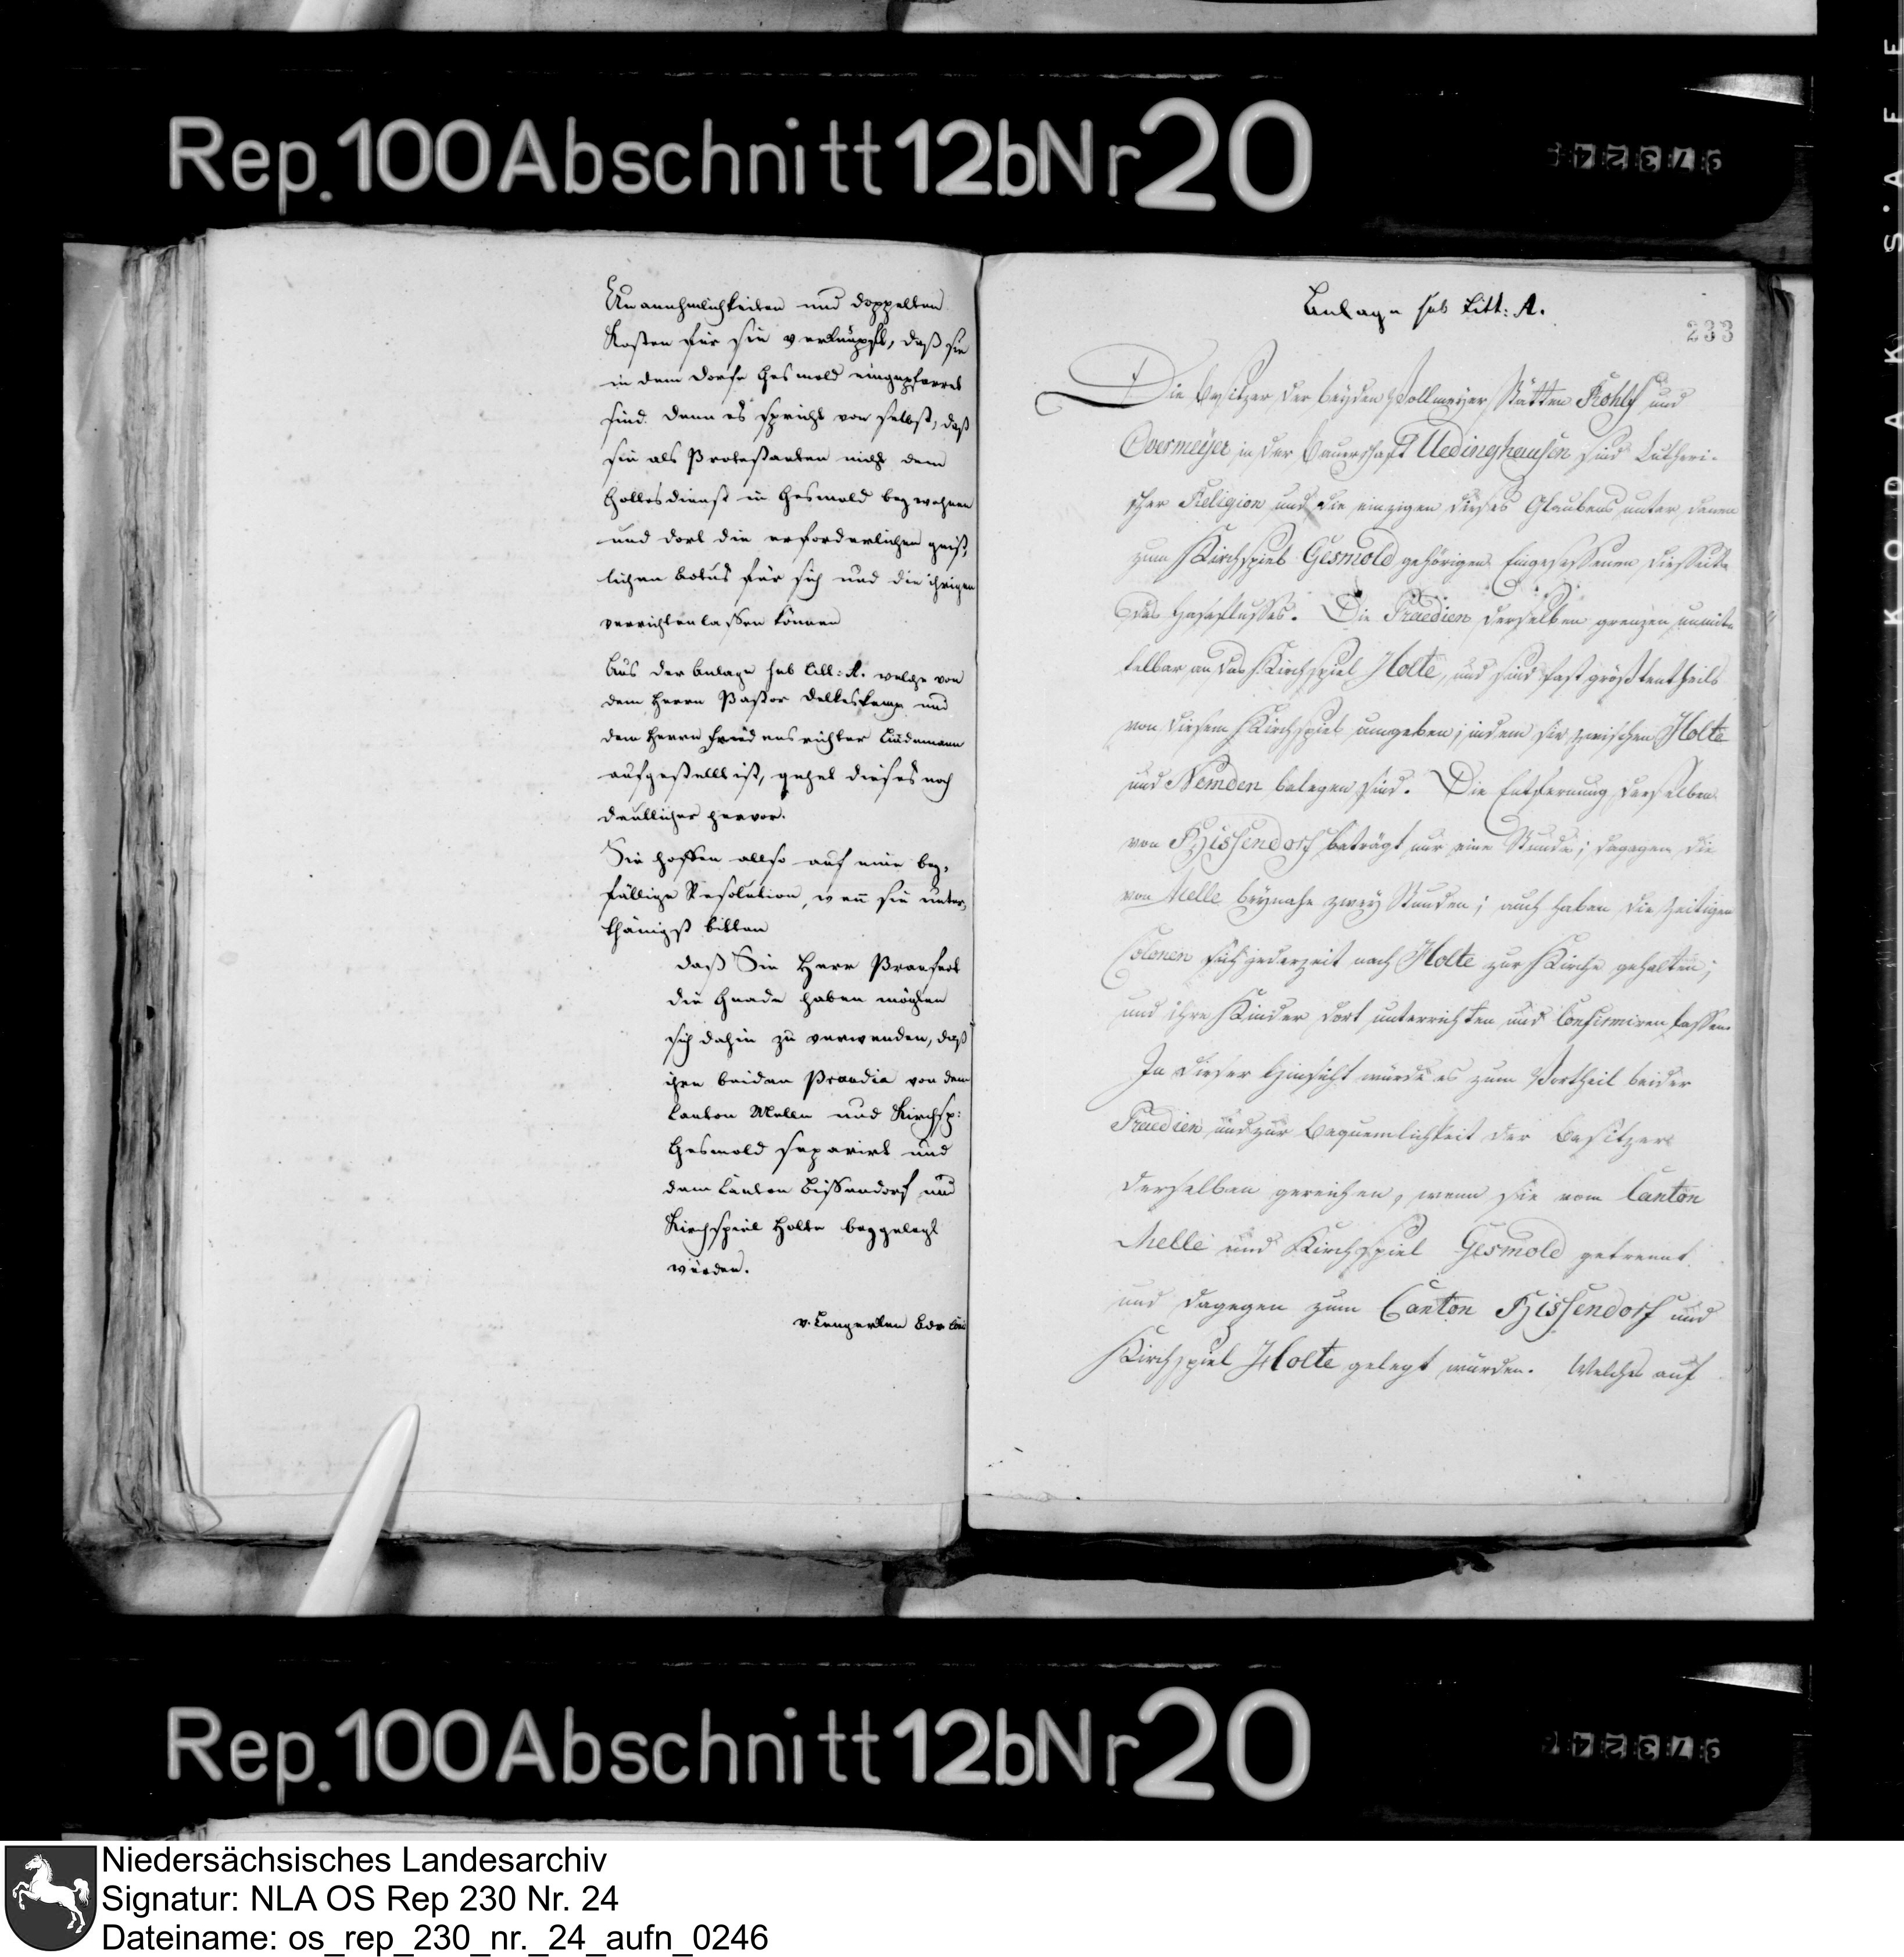 Rep. 100 Abschnitt 12b Nr 20
Unannehmlichkeiten und doppelten
Kosten für sie verknüpft, daß sie
in dem Dorfe Gesmold eingepfarret
sind. denn es spricht von selbst, daß
sie als Protestanten nicht dem
Gottesdienst in Gesmold beywohnen
und dort die erforderlichen geist,
lichen Actus für sich und die ihrigen
verrichten lassen können
Aus der Anlage sub Litt: A. welche von
dem Herrn Pastor Delkeskamp und
dem Herrn Friedensrichter Lüdemann
aufgestellt ist, gehet dieses noch
deutlicher hervor.
Sie hoffen allso auf eine bey,
fällige Resolution, wen sie unter,
thänigst bitten
daß Sie Herr Praefect
die Gnade haben mögten
sich dahin zu verwenden, daß
ihre beiden Praedia von dem
Canton Melle und Kirchsp:
Gesmold separirt und
dem Canton Bissendorf und
Kirchspiel Holte beygelegt
würden.
v. Lengerken
Anlage sub Litt: A.
233
Die Besitzer der beyden Vollmeyer Stätten Rohlf und
Overmeyer in der Bauerschaft Uedinghausen sind Lutheri-
scher Religion und die einzigen dieses Glaubens unter denen
zum Kirchspiel Gesmold gehörigen Eingesessenen diesseits
des Haseflusses. Die Praedien derselben grenzen unmit-
telbar an das Kirchspiel Holte, und sind fast größtentheils
von diesem Kirchspiel umgeben; indem sie zwischen Holte
und Nemden belegen sind. Die Entfernung derselben
von Bissendorf beträgt nur eine Stunde; dagegen die
von Melle beynahe zwey Stunden; auch haben die zeitigen
Colonen sich jederzeit nach Holte zur Kirche gehalten;
und ihre Kinder dort unterrichten und Confirmiren lassen.
In dieser Hinsicht würde es zum Vortheil beider
Praedien und zur Bequemlichkeit der Besitzer
derselben gereichen, wenn sie vom Canton
Melle und Kirchspiel Gesmold getrennt
und dagegen zum Canton Bissendorf und
Kirchspiel Holte gelegt würden. Welches auf
Rep. 100 Abschnitt 12b Nr 20
KODAK S'AFE
Niedersächsisches Landesarchiv
Signatur: NLA OS Rep 230 Nr. 24
Dateiname: os_rep_230_nr._24_aufn_0246